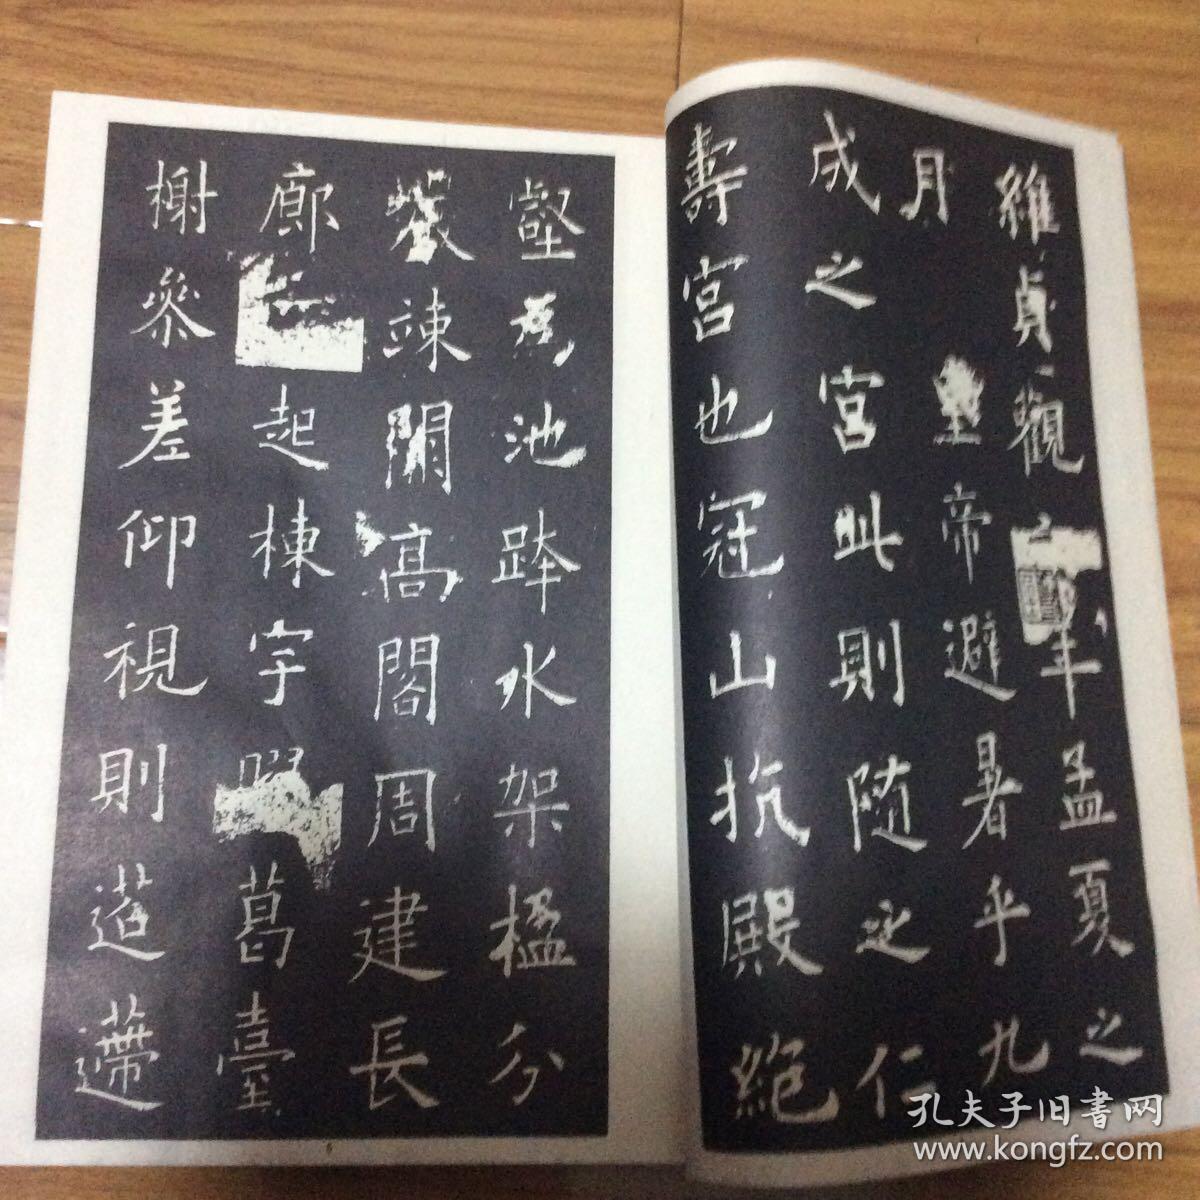 維貞觀六年孟夏之
月
皇帝避暑乎九
成之宮此則随之仁
壽宮也冠山抗殿絕
壑為池跨水架楹分
巖竦闕高閣周建長
廊四起棟宇膠葛臺
榭參差仰視則迢遰
孔夫子旧書网
www.kongfz.com